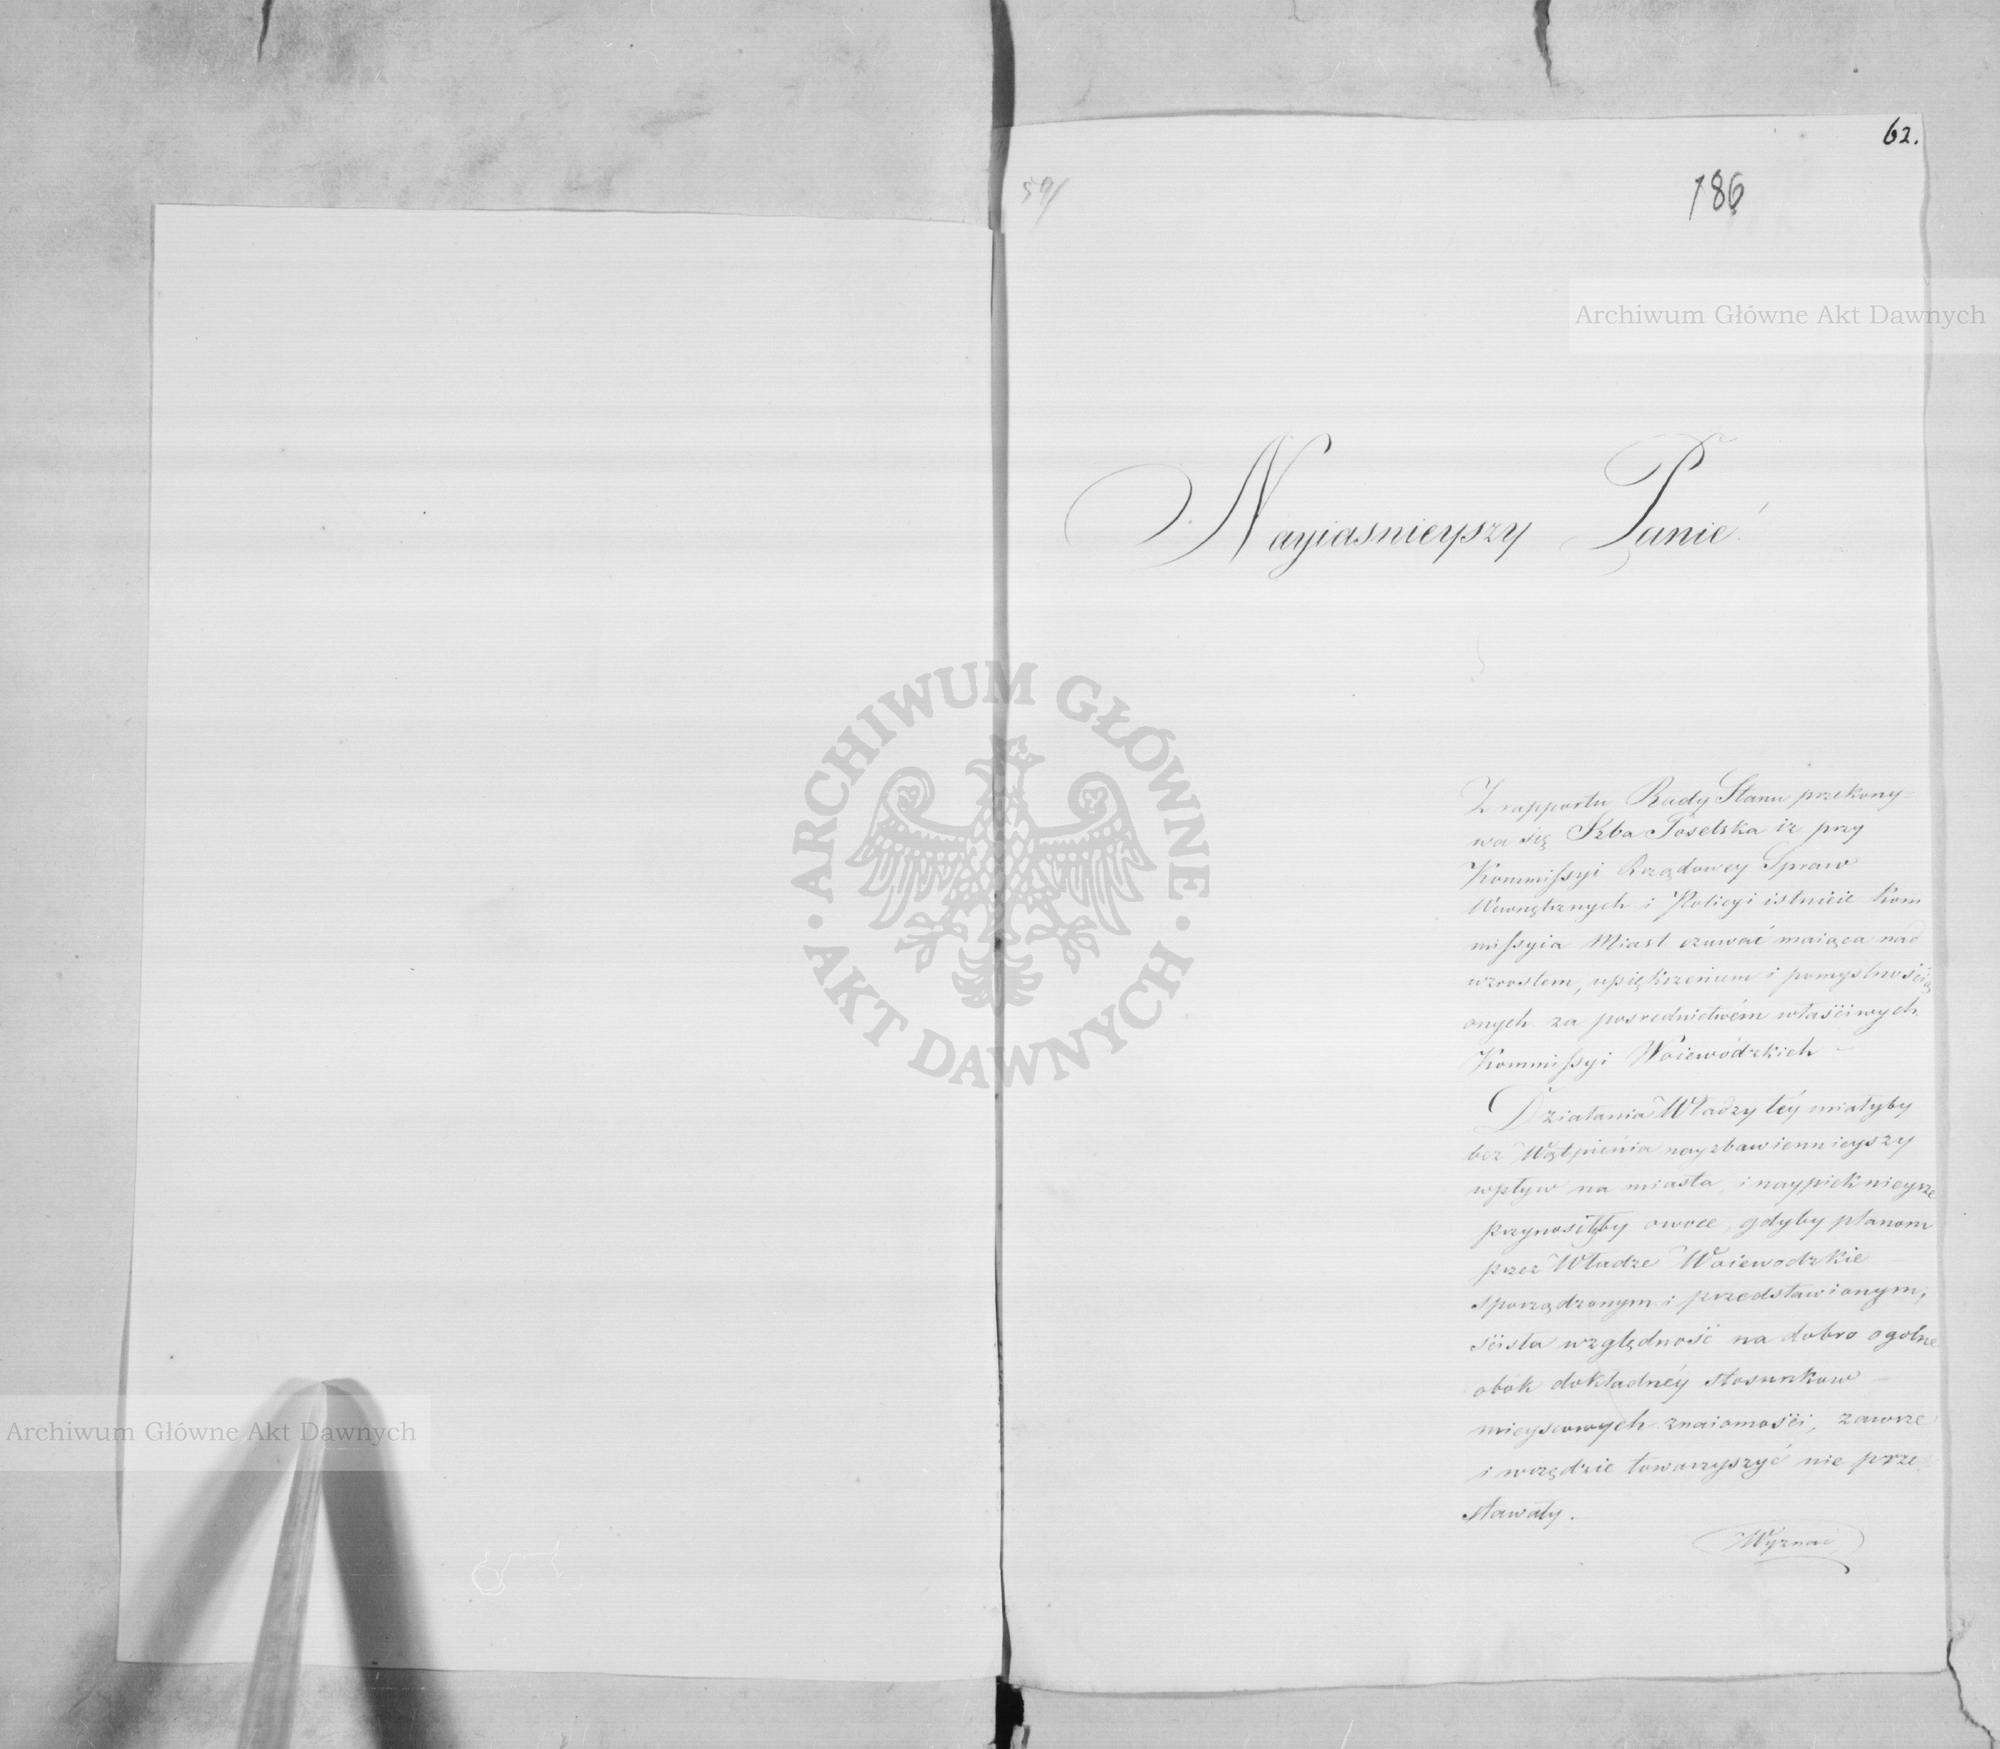 62.
186
59/
Nayiasnieyszy Panie!
Z rapportu Rady Stanu przekony=
wa się Izba Poselska iż przy
Kommissyi Rządowey Spraw
Wewnętrznych i Policyi istnieie Kom
missyia Miast czuwać maiąca nad
wzrostem, upiękrzeniem i pomyslnością
onych za posrednictwem właściwych
Kommissyi Woiewódzkich
Działania Władzy téy miałyby
bez Wątpienia nayzbawiennieyszy
wpływ na miasta, i naypieknieysze
przynosiłyby owoce, gdyby planom
przez Władze Woiewodzkie
sporządzonym i przedstawionym,
ścisła względność na dobro ogolne
obok dokładnéy stosunkow
mieyscowych znaiomości, zawsze
i wszędzie towarzyszyć nie prze
stawały.
Wyznać
Archiwum Główne Akt Dawnych
Archiwum Główne Akt Dawnych
ARCHIWUM GŁÓWNE
AKT DAWNYCH